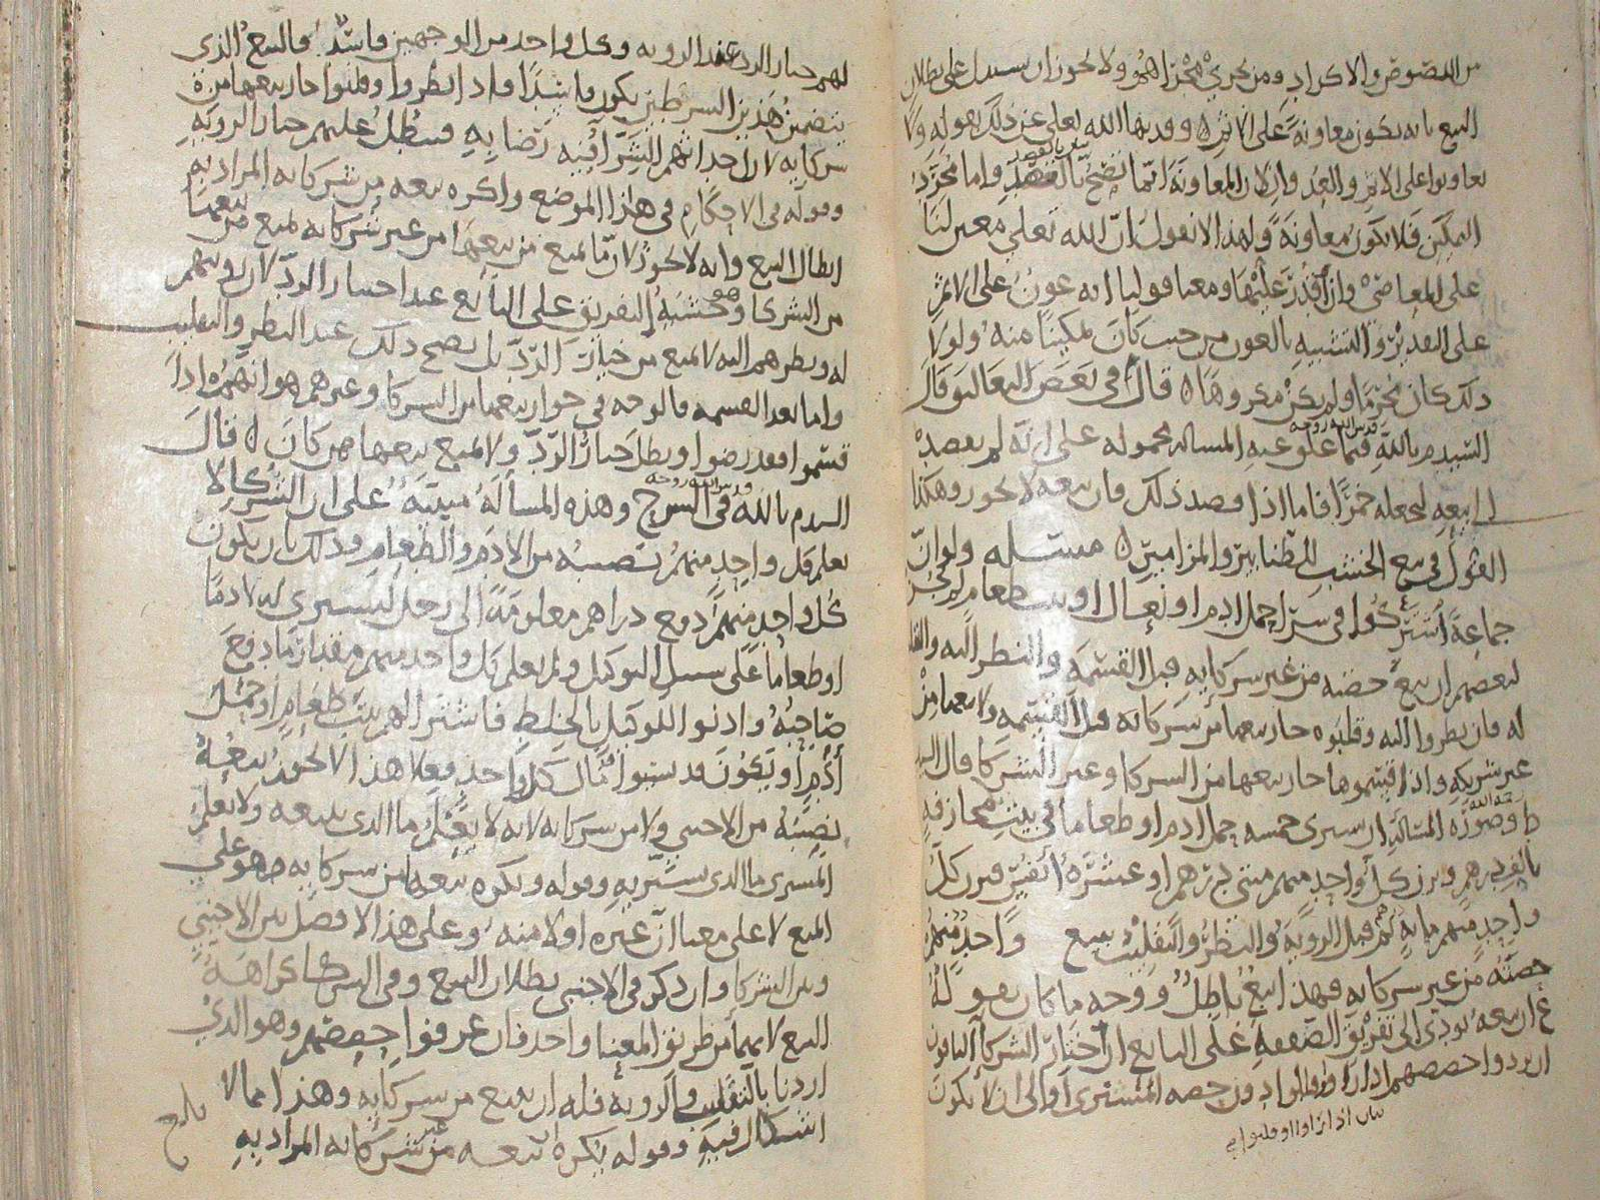 من اللصوص والاكراد ومن يجري مجراهم ولا يجوز ان يستدل على بطلان
البيع بانه يكون معاونة على الاثم وقد نهى الله تعالى عن ذلك بقوله ولا
تعاونوا على الاثم والعدوان لان المعاونة انما تصح بالقصد واما مجرد
التمكين فلا يكون معاونة ولهذا لا نقول ان الله تعالى معين لنا
على المعاصي وان اقدر عليها ومعنا قولنا انه عون على الاثم
على التقدير والتشبيه بالعون من حيث كان تمكينا منه ولولا
ذلك كان محرما ولم يكن مكروها قال في بعض التعاليق وقال
السيد م بالله قدس الله روحه فيما علق عنه المسالة محمولة على انه لم يقصد
ببيعه ليجعله خمرا فاما اذا قصد ذلك فان بيعه لا يجوز وهكذا
القول في بيع الخشب للطنابير والمزامير مسئلة ولو ان
جماعة اشتركوا في شرا حمل ادم او نعال او بيت طعام لم يجز
لبعضهم ان يبيع حصته من غير شركايه قبل القسمة والنظر اليه
له فان نظروا اليه وقلبوه جاز بيعها من شركائه قبل القسمة ولا بيعها من
غير شريكه واذا اقتسموها جاز بيعها من الشركا وغير الشركا قال
ط رحمه الله وصورة المسالة ان يشتري خمسة حمل ادم او طعاما في بيت مجازفة
بالف درهم ويزن كل واحد منهم مئتي درهم او عشرة انفس يزن كل
واحد منهم مائة درهم قبل الروية والنظر والتقليب يبيع واحد منهم
حصته من غير شركايه فهذا بيع باطل ووجه ما كان يقوله
ع ان بيعه يودي الى تفريق الصفقة على البايع ان اختار الشركا الباقون
ان يردوا حصصهم اذا راوا دون حصة المشتري او الى ان لا يكون
بيان اذا راوا او قلبوا
لهم خيار الرد عند الروية وكل واحد من الوجهين فاسد فالبيع الذي
يتضمن هذين الشرطين يكون فاسدا واذا نظروا وقلبوا جاز بيعها من
شركايه لان احداثهم الشرا فيه رضا به فيبطل عليهم خيار الروية
وقوله في الاحكام في هذا الموضع واكره بيعه من شركائه المراد به
ابطال البيع وانه لا يجوز لان ما يمنع من بيعها من غير شركائه يمنع من بيعها
من الشركا وهو خشية التفريق على البائع عند اختيار الرد لان رويتهم
له ونظرهم اليه لا يمنع من خيار الرد بل يصح ذلك عند النظر والتقليب
واما بعد القسمة فالوجه في جواز بيعها من الشركا وغيرهم هو انهم اذا
قسموا فقد رضوا وبطل خيار الرد ولا يمنع بيعها ممن كان قال
السيد م بالله قدس الله روحه في الشرح وهذه المسألة مبنية على ان الشركا لا
يعلم كل واحد منهم نصيبه من الادم والطعام وذلك بان يكون
كل واحد منهم دفع دراهم معلومة الى رجل ليشتري له ادما
او طعاما على سبيل التوكيل ولم يعلم كل واحد منهم مقدار ما دفع
صاحبه واذنوا للوكيل بالخلط فاشترا لهم بيت طعام او حمل
أدم او يكون قد نسوا مال كل واحد فعلا هذا لا يجوز بيعه
نصيبه من الاجنبي ولا من شركائه لانه لا يعلم ما الذي يبيعه ولا يعلم
المشتري ما الذي يشتريه وقوله ويكره بيعه من شركايه هو على
المنع لا على معنا ان غيره اولا منه وعلى هذا لا فصل بين الاجنبي
وبين الشركا وان ذكر في الاجنبي بطلان البيع وفي الشركا كراهة
البيع لانهما من طريق المعنا واحد فان عرفوا حصصهم وهو الذي
اردنا بالتقليب والروية فله ان يبيع من شركايه وهذا مما لا
اشكال فيه وقوله يكره بيعه من غير شركائه المراد به
بلغ